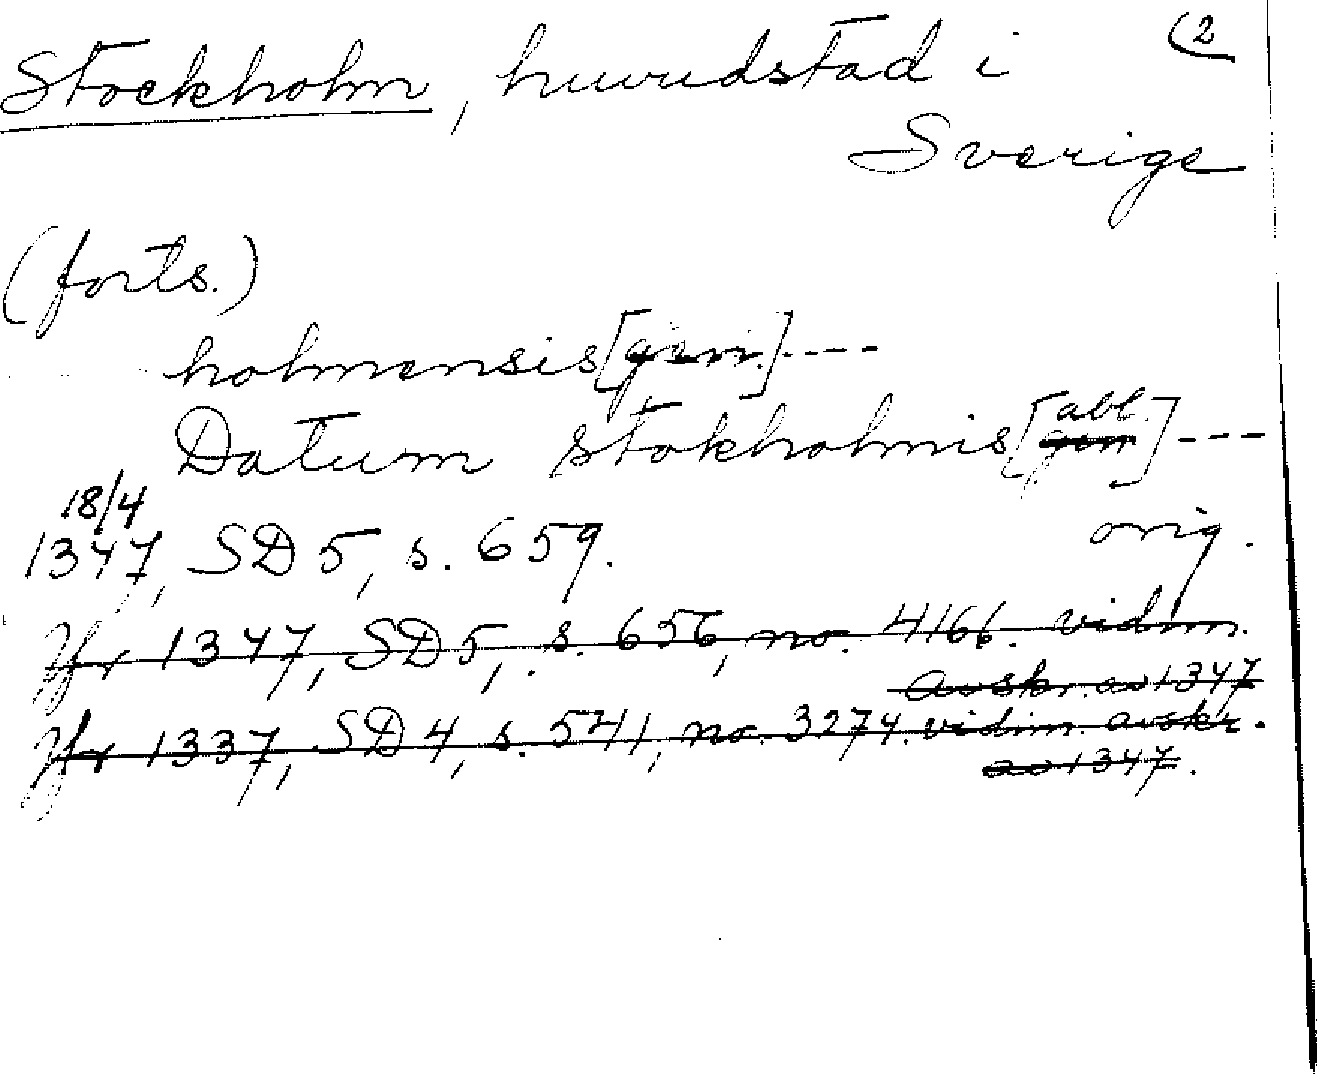 Stockholm, huvudstad i (2
Sverige
(forts.)
holmensis [gen.] ----
Datum stokholmis [gen abl] ---
18/4
1347, SD 5, s. 659. orig.
Jfr 1347, SD 5, s. 656, no. 4166. vidim.
avskr. av 1347
Jfr 1337, SD 4, s. 541, no. 3274. vidim. avskr.
av 1347.